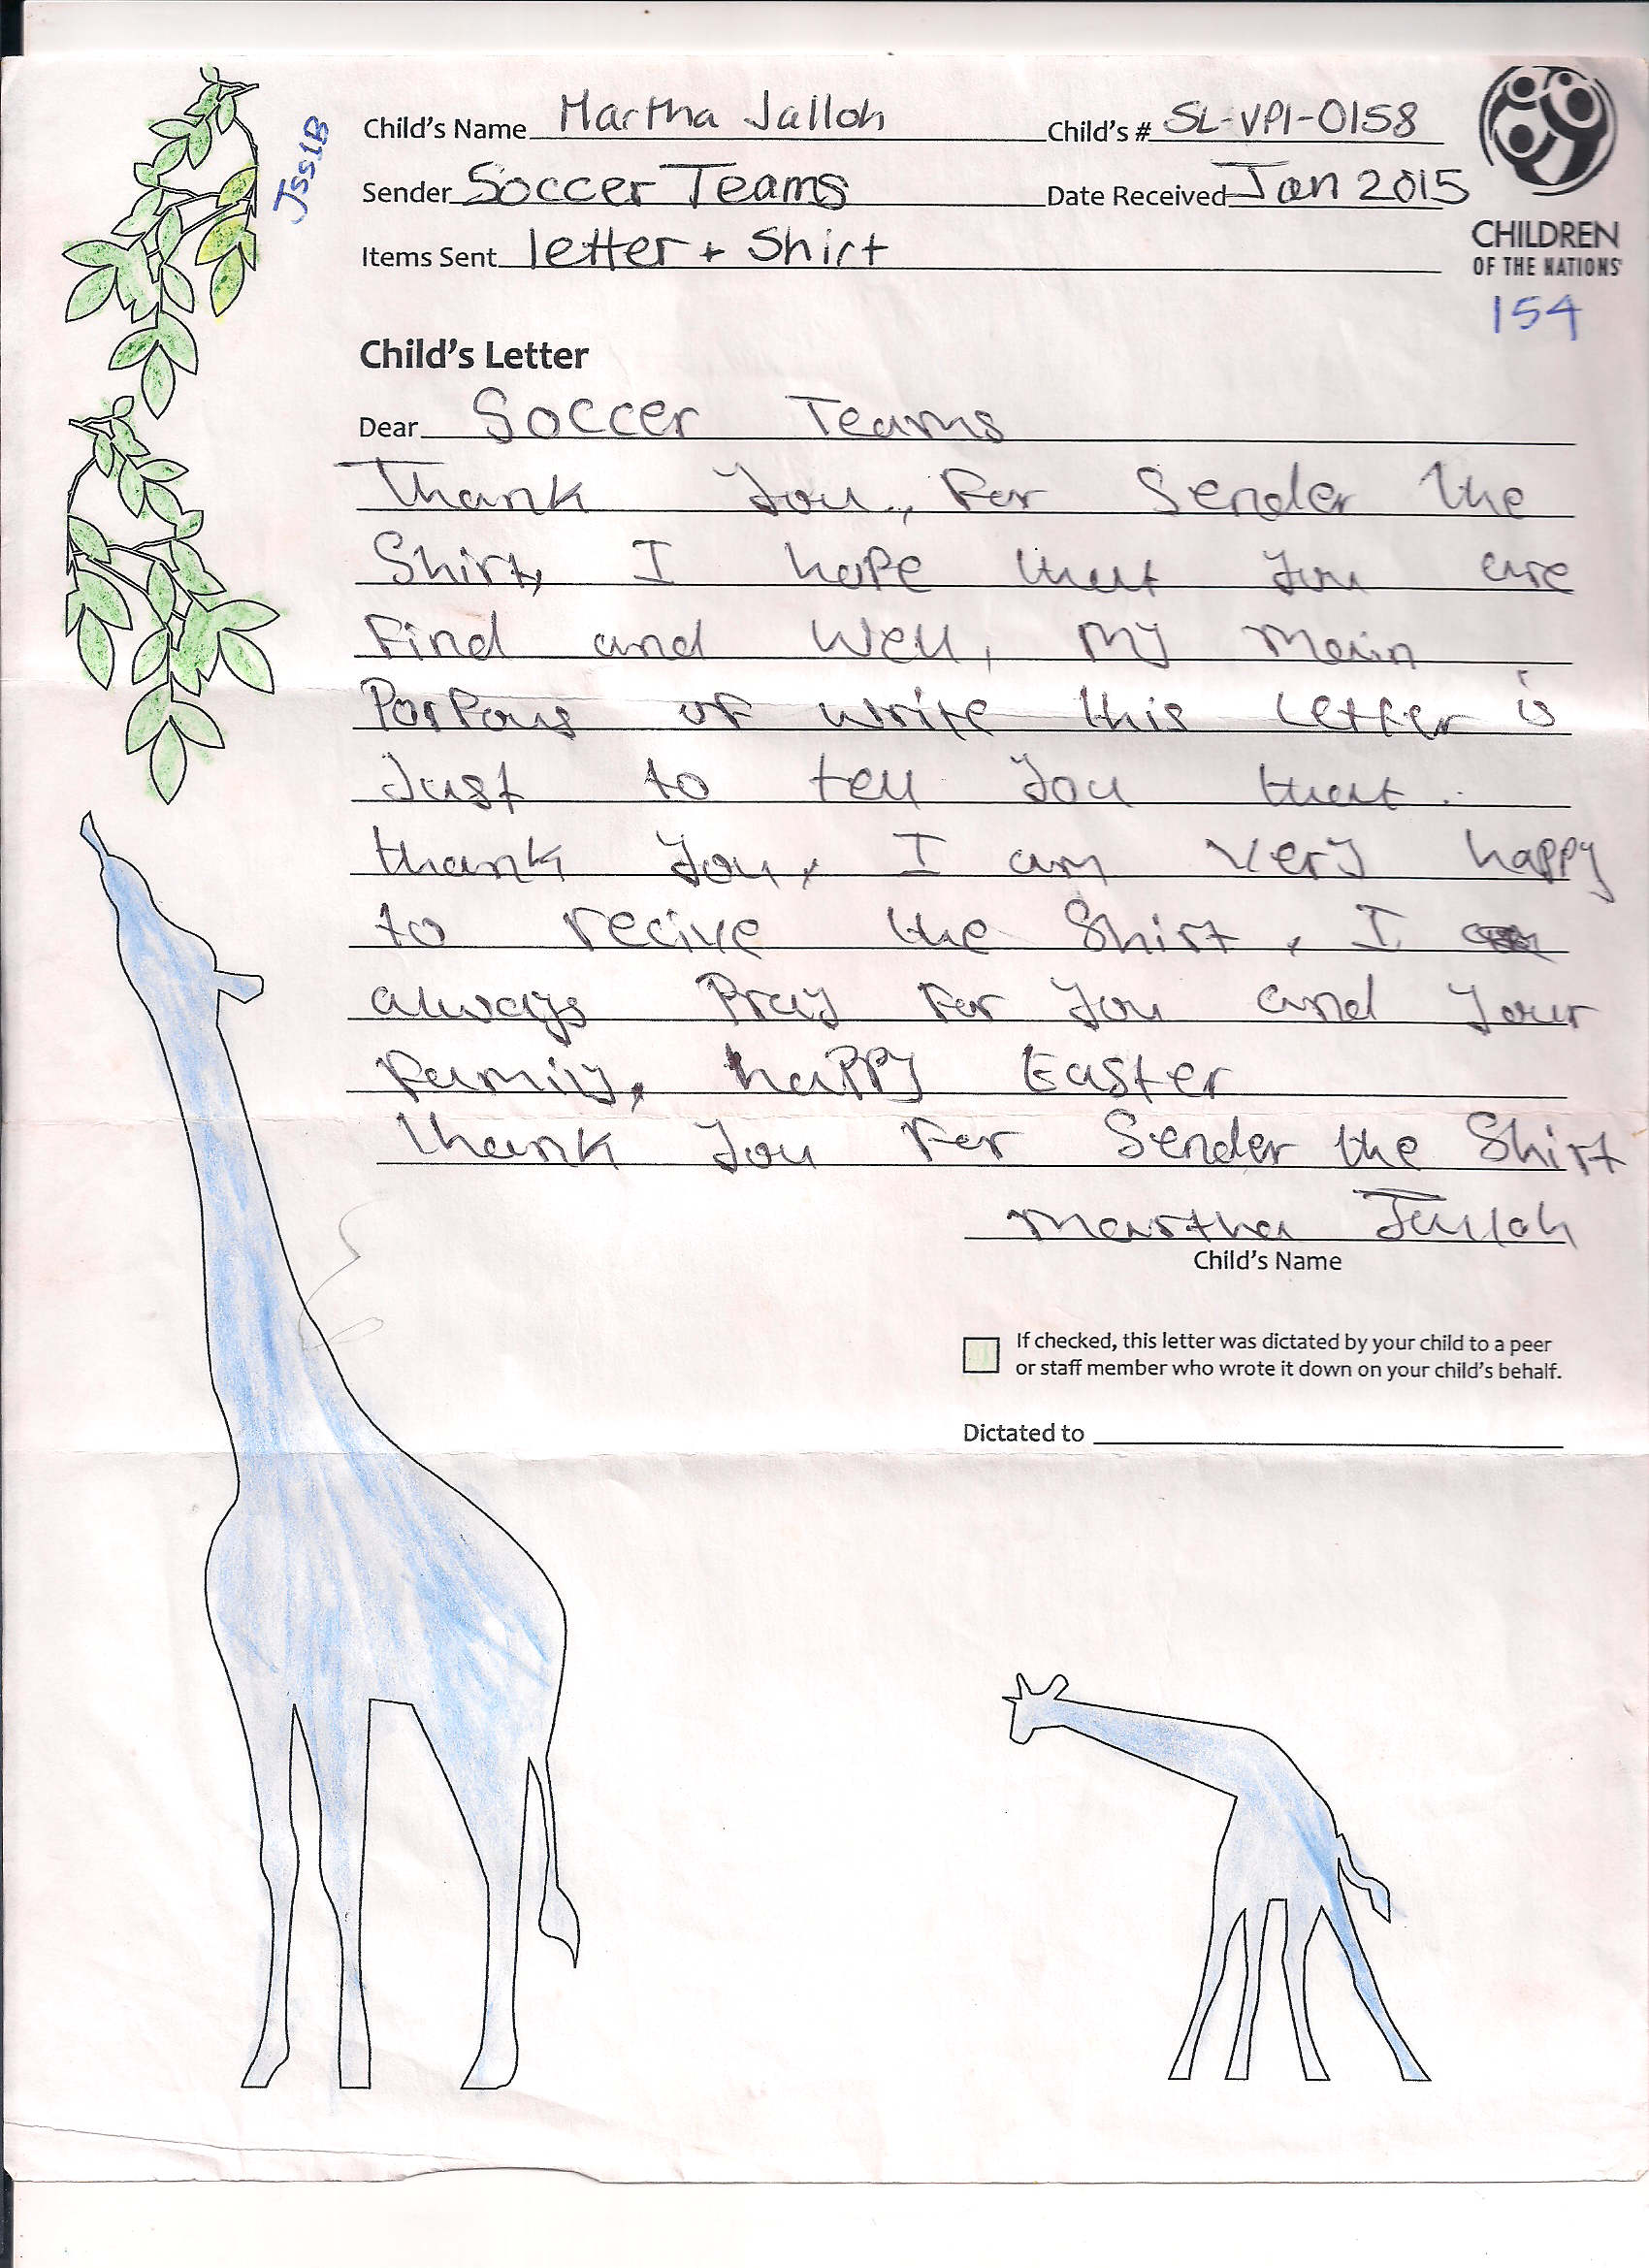 JSS1B
Child's Name Martha Jalloh Child's # SL-VPI-0158
Sender Soccer Teams Date Received Jan 2015
Items Sent letter + Shirt
CHILDREN
OF THE NATIONS
154
Child's Letter
Dear Soccer Teams
Thank you, For Sender the
Shirt, I hope that you are
Find and Well, my main
Porpous of write this Letter is
Just to tell you that
thank you, I am very happy
to recive the Shirt, I
always Pray For you and your
Family, happy Easter
thank you For Sender the Shirt
Martha Jalloh
Child's Name
If checked, this letter was dictated by your child to a peer
or staff member who wrote it down on your child's behalf.
Dictated to